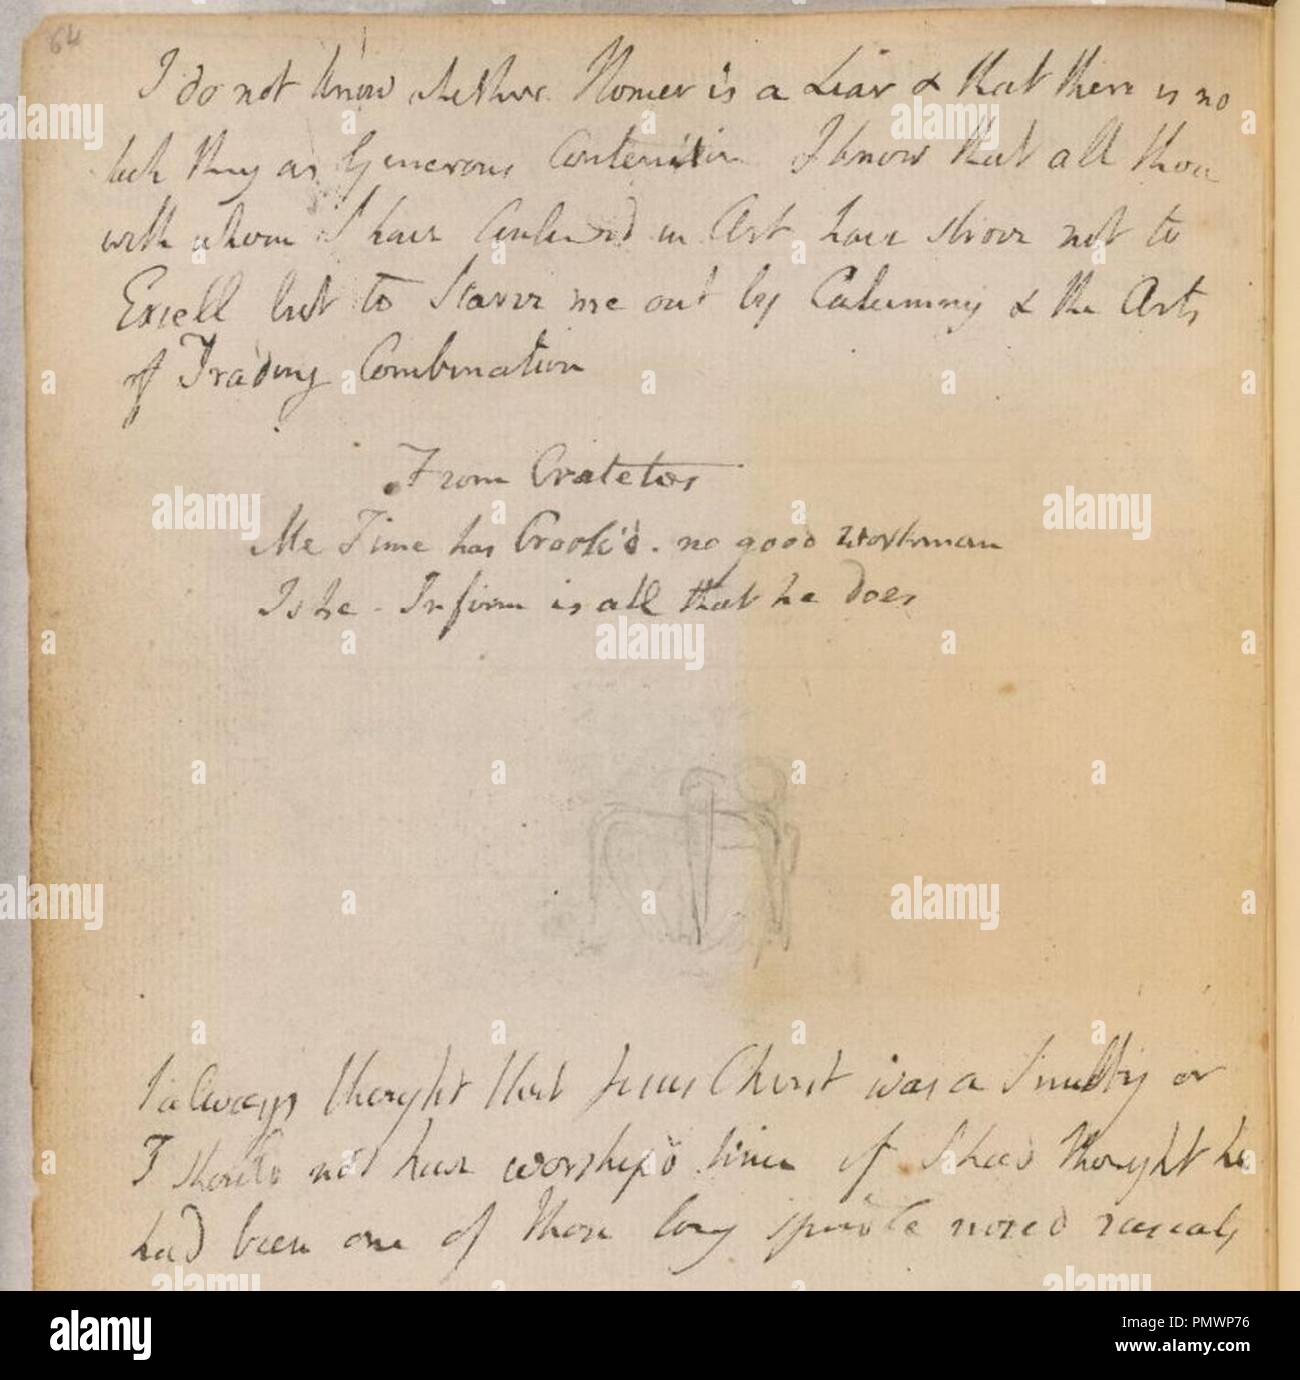 64
I do not know whether Homer is a Liar & that there is no
such thing as Generous Contention I know that all those
with whom I have Contended in Art have strove not to
Excell but to Starve me out by Calumny & the Arts
of Trading Combination
From Cratetos
Me Time has Crook'd. no good workman
Is he. Infirm is all that he does
I always thought that Jesus Christ was a Snubby or
I should not have worship'd him if I had thought he
had been one of those long spindle nosed rascals
alamy
a
alamy
Image ID: PMWP76
www.alamy.com